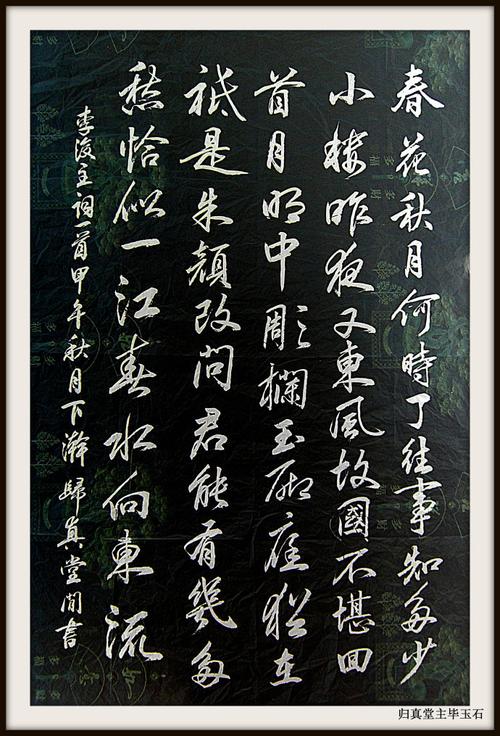 春花秋月何時了往事知多少
小樓昨夜又東風故國不堪回
首月明中彫欄玉砌應猶在
祗是朱顏改問君能有幾多
愁恰似一江春水向東流
李後主詞一首甲午秋月下澣歸真堂閒書
归真堂主毕玉石